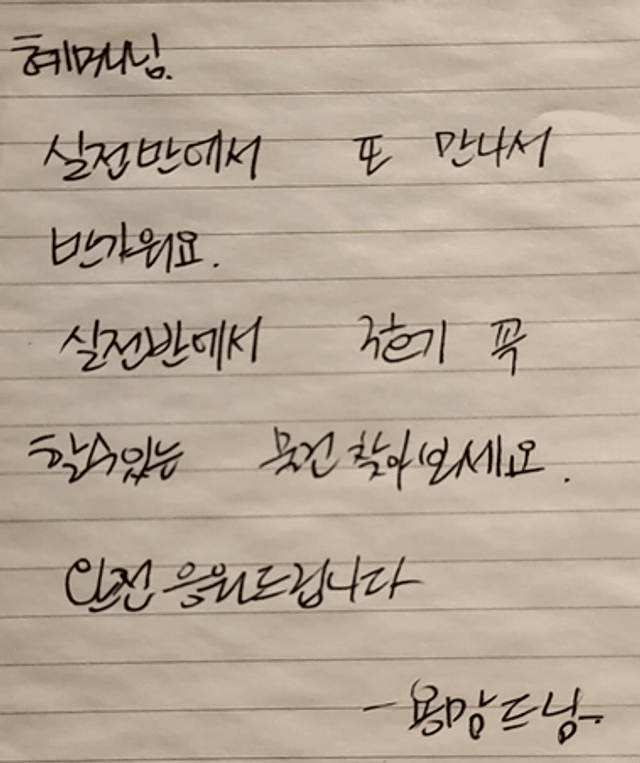 혜머니님.
실전반에서 또 만나서
반가워요.
실전반에서 꼭
할수있는 물건 찾아보세요.
완전 응원드립니다
-용맘드님-